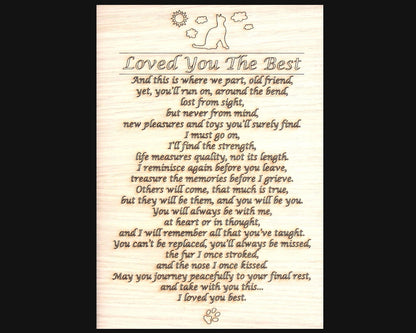 Loved You The Best
And this is where we part, old friend,
yet, you'll run on, around the bend,
lost from sight,
but never from mind,
new pleasures and toys you'll surely find.
I must go on,
I'll find the strength,
life measures quality, not its length.
I reminisce again before you leave,
treasure the memories before I grieve.
Others will come, that much is true,
but they will be them, and you will be you.
You will always be with me,
at heart or in thought,
and I will remember all that you've taught.
You can't be replaced, you'll always be missed,
the fur I once stroked,
and the nose I once kissed.
May you journey peacefully to your final rest,
and take with you this...
I loved you best.